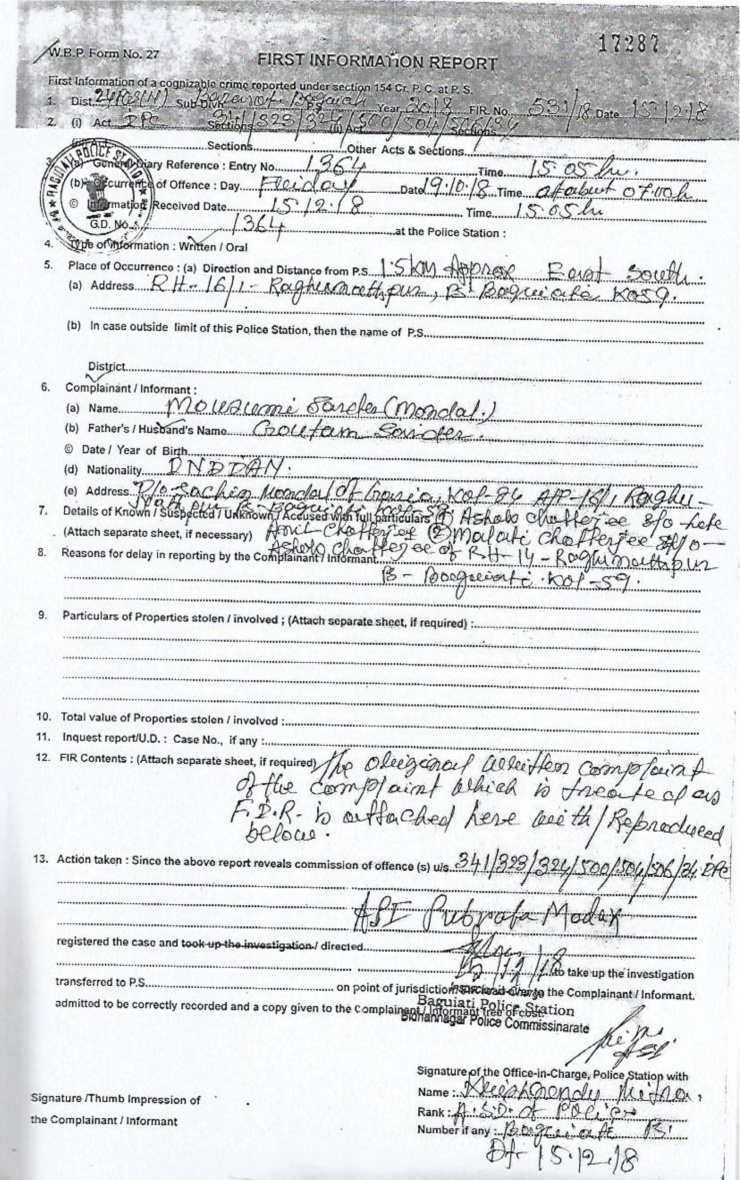 17287
W.B.P. Form No. 27
FIRST INFORMATION REPORT
First Information of a cognizable crime reported under section 154 Cr. P. C. at P. S.
1. Dist. 24PGS(N) Sub Divn. Year 2018 FIR. No. 531/18 Date 15.12.18
2. (i) Act IPC Sections 341/323/324/500/504/506/34
Sections Other Acts & Sections
General Diary Reference : Entry No. 1364 Time 15:05 hr.
(b) Occurrence of Offence : Day Friday Date 19.10.18 Time at about 07:00 h
© Information Received Date 15.12.18 Time 15:05 hr
G.D. No. 1364 at the Police Station :
4. Type of Information : Written / Oral
5. Place of Occurrence : (a) Direction and Distance from P.S. 1.5 km Approx East South.
(a) Address RH-16/1- Raghunathpur, PS- Baguiati Kol-59.
(b) In case outside limit of this Police Station, then the name of P.S.
District
6. Complainant / Informant :
(a) Name Mousumi Sarder (Mondal.)
(b) Father's / Husband's Name Goutam Sarder.
© Date / Year of Birth
(d) Nationality INDIAN.
(e) Address D/o Sachin Mondal of Kol-84 A/P-16/1 Raghu-
nathpur PS- Baguiati Kol-59
7. Details of Known / Suspected / Unknown / Accused with full particulars (1) Ashok Chatterjee S/o- Late
(Attach separate sheet, if necessary) Chatterjee (2) Malati Chatterjee
Ashok Chatterjee of RH-14- Raghunathpur
8. Reasons for delay in reporting by the Complainant / Informant
PS- Baguiati Kol-59.
9. Particulars of Properties stolen / involved ; (Attach separate sheet, if required) :
10. Total value of Properties stolen / involved :
11. Inquest report/U.D. : Case No., if any :
12. FIR Contents : (Attach separate sheet, if required) The original written complaint
of the complaint which is treated as
F.I.R. is attached here with/Reproduced
below.
13. Action taken : Since the above report reveals commission of offence (s) u/s. 341/323/324/500/504/506/34 IPC
ASI Subrata Modak
registered the case and took up the investigation / directed
to take up the investigation
transferred to P.S. on point of jurisdiction to the Complainant / Informant.
admitted to be correctly recorded and a copy given to the Complainant / Informant free of cost.
Baguiati Police Station
Bidhannagar Police Commissinarate
Signature of the Office-in-Charge, Police Station with
Name : Mitra
Signature /Thumb Impression of
Rank : A.S.I. of Police
the Complainant / Informant
Number if any : Baguiati PS
Dt- 15.12.18